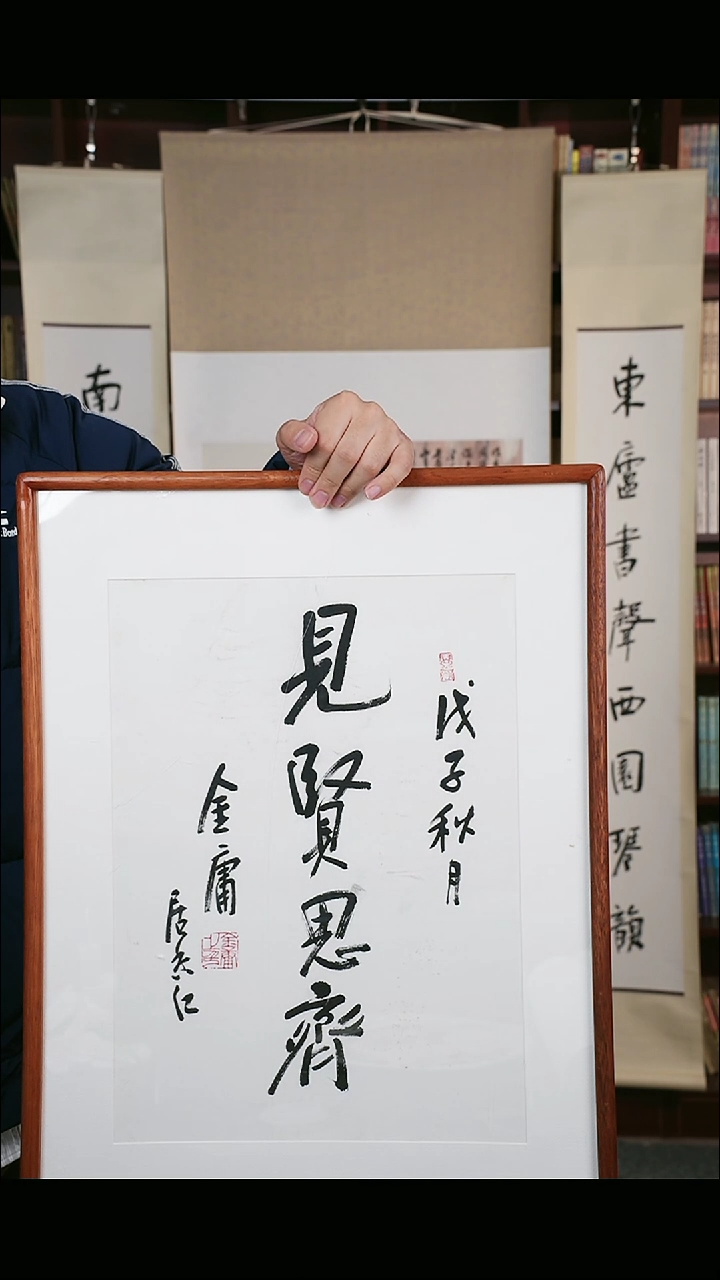 見賢思齊
戊子秋月
金庸
金庸
東廬書聲西園琴韻
南